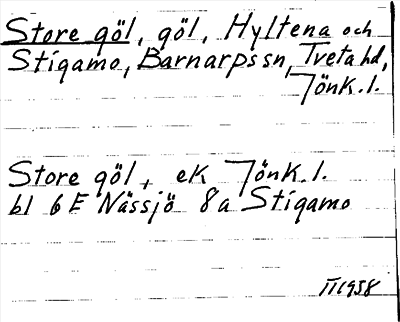 Store göl, göl, Hyltena och
Stigamo, Barnarps sn, Tveta hd,
Jönk. l.
Store göl, ek Jönk. l.
bl 6 E Nässjö 8a Stigamo
III 1958